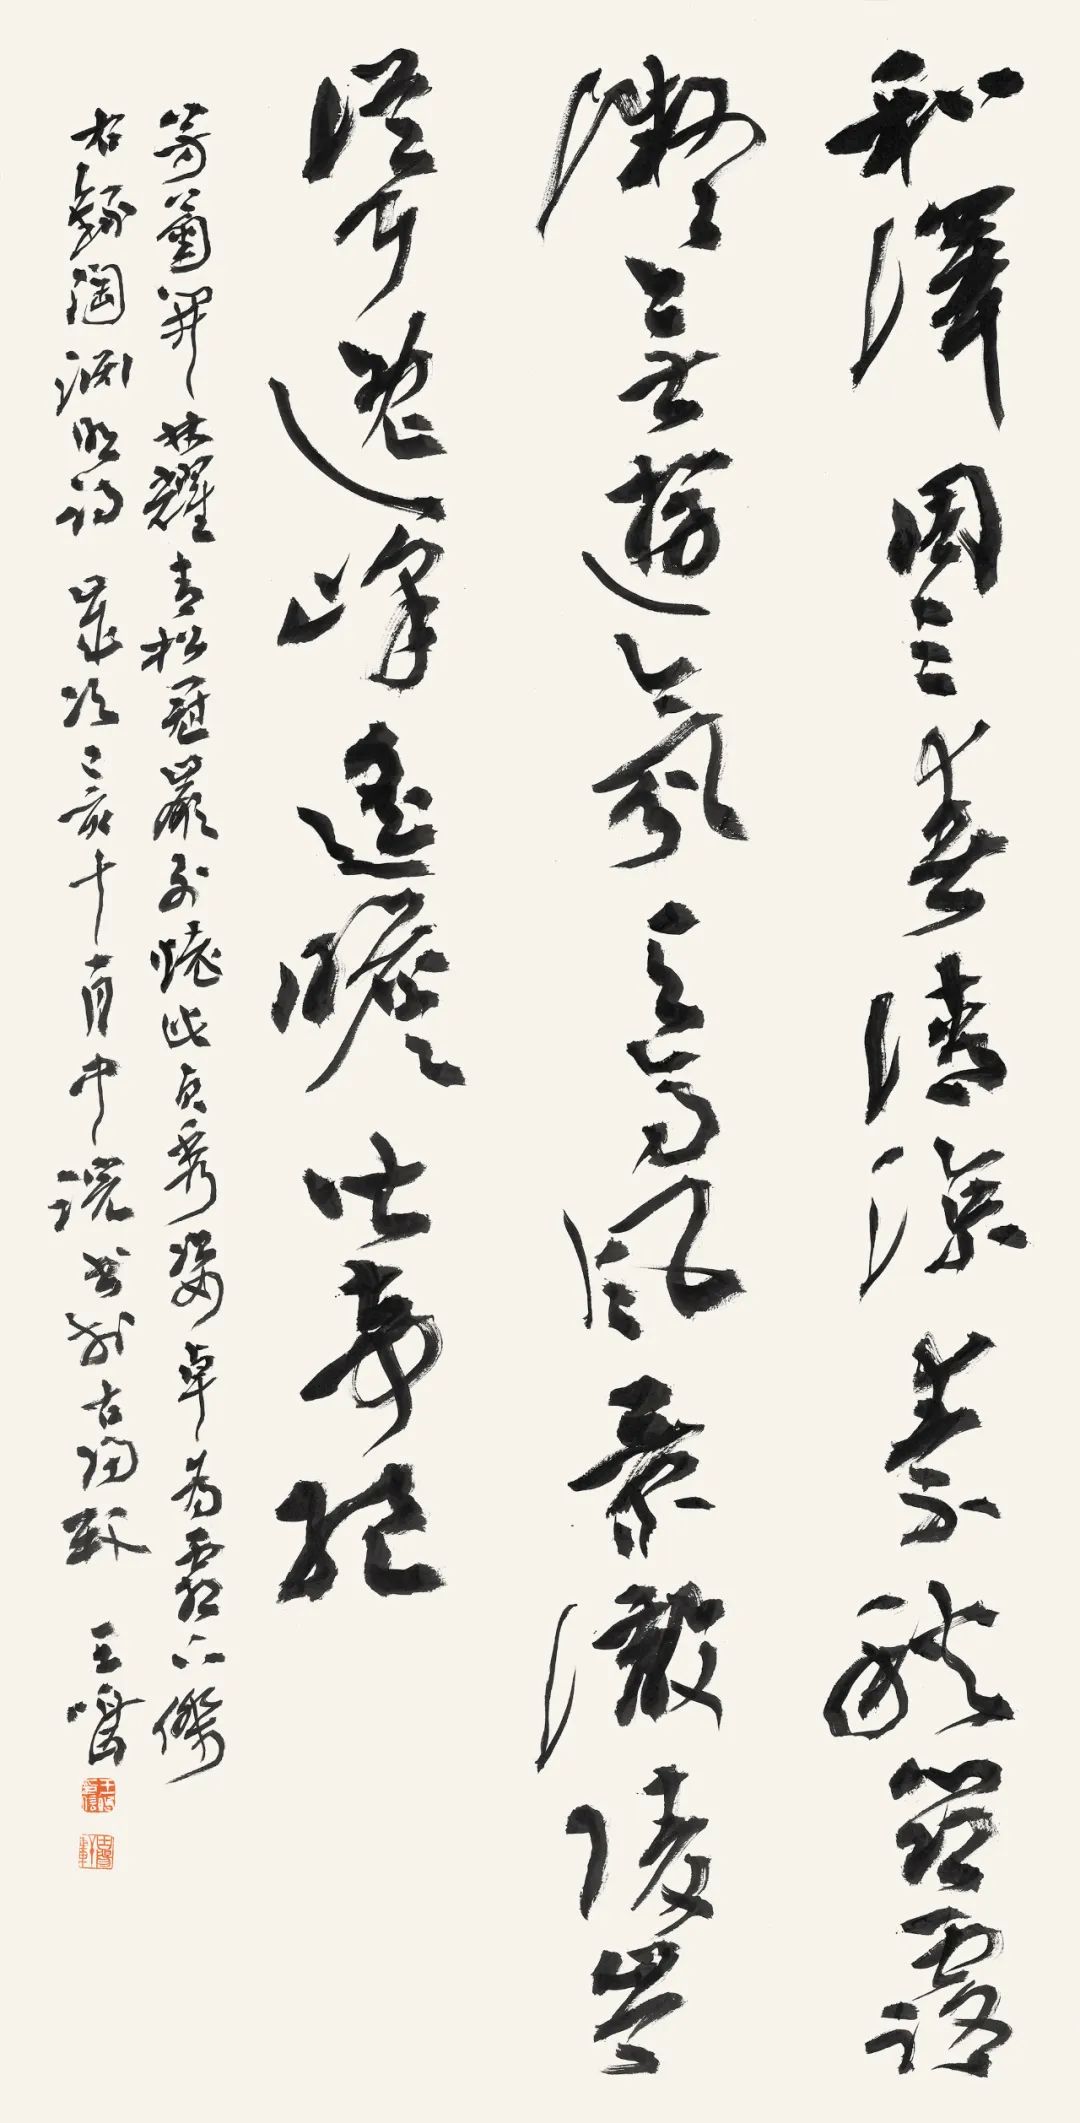 和澤周三春清涼素秋節露
凝無遊氛天高風景澈陵岑
聳逸峰遙瞻皆奇絕
芳菊開林耀青松冠巖列懷此貞秀姿卓為霜下傑
右錄陶淵明詩 歲次己亥十一月中浣書於古 王嘯